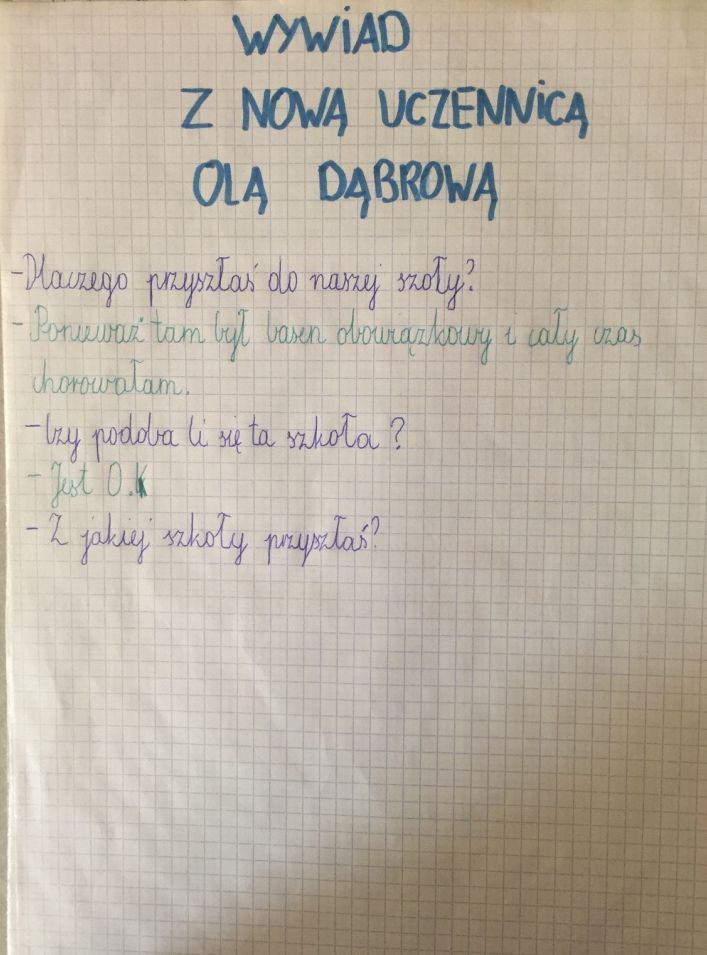 WYWiAD
Z NOWĄ UCZENNiCĄ
OLĄ DĄBROWĄ
-Dlaczego przyszłaś do naszej szoły?
- Ponieważ tam był basen obowiązkowy i cały czas
chorowałam.
- Czy podoba Ci się ta szkoła?
- Jest O.K
- Z jakiej szkoły przyszłaś?